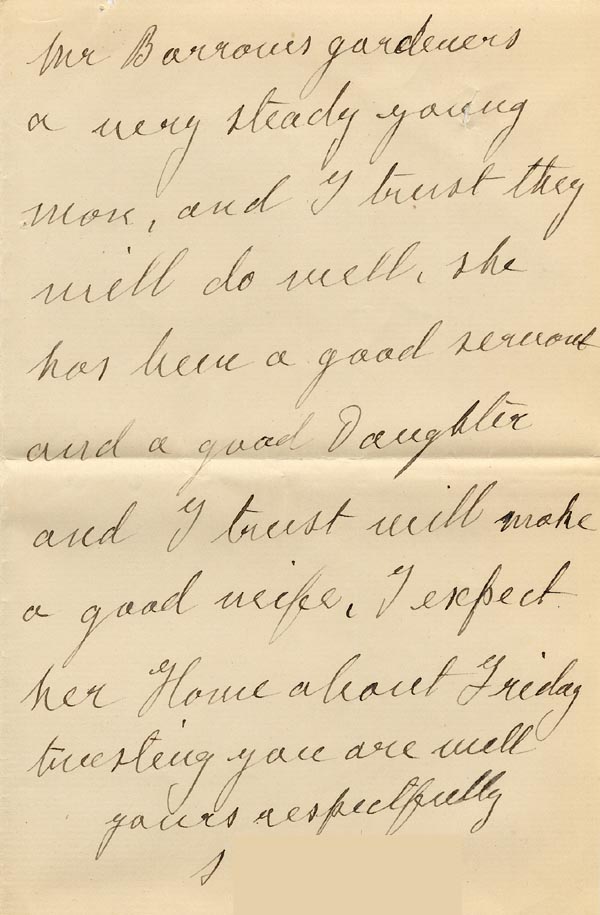 Mr Barrows gardeners
a very steady young
man, and I trust they
will do well, she
has been a good servant
and a good Daughter
and I trust will make
a good wife, I expect
her Home about Friday
trusting you are well
yours respectfully
S